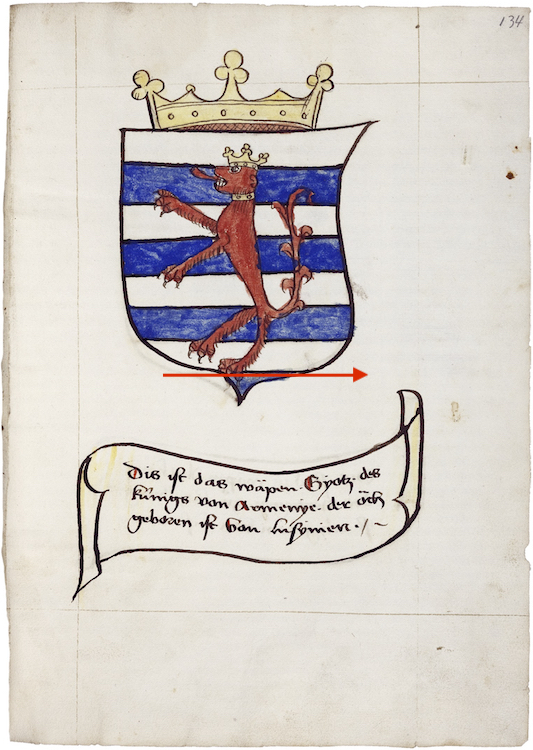 134
Dis ist das wäpen Gyotz des
künigs von Armenye · der öch
geboren ist von lusynien ·